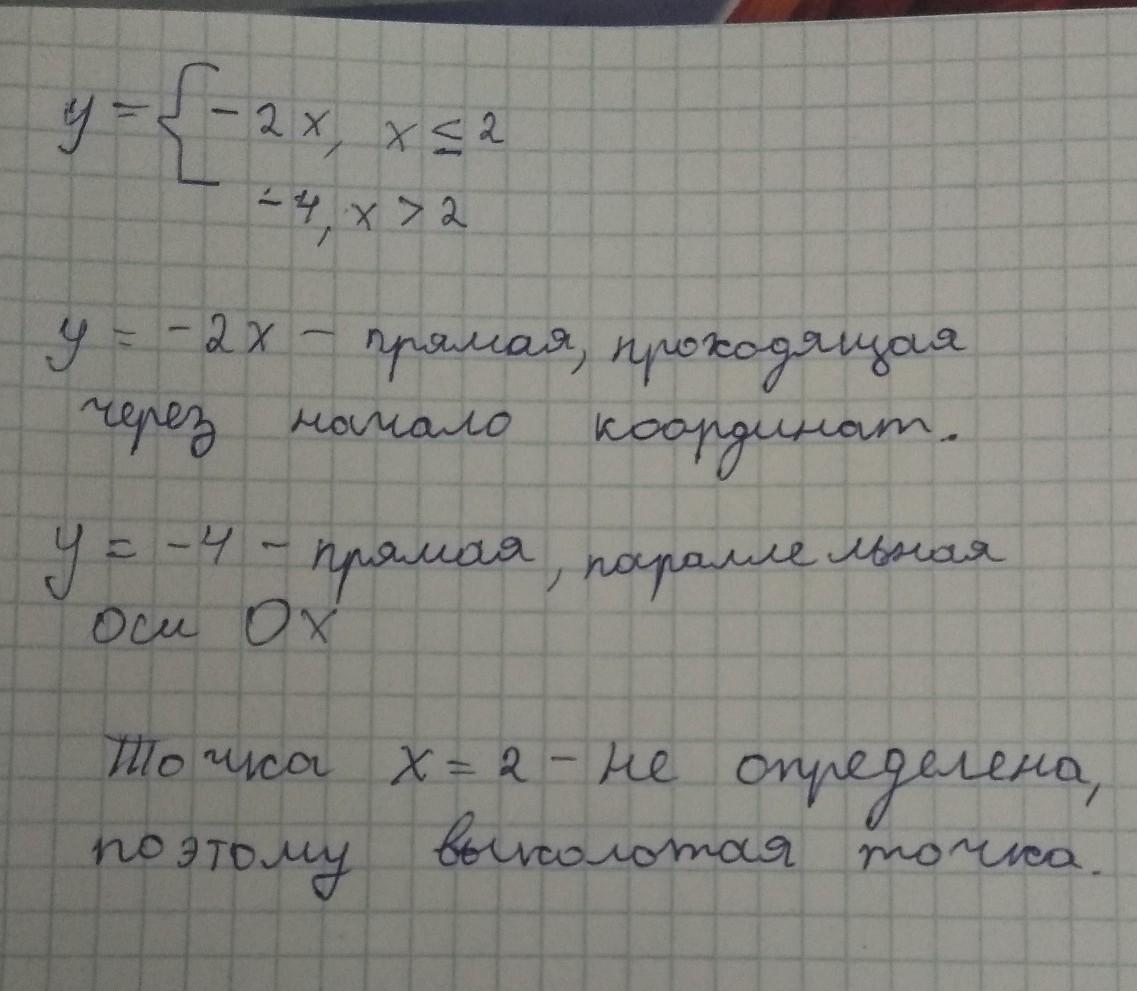 y = { - 2x, x ≤ 2
- 4, x > 2
y = -2x - прямая, проходящая
через начало координат.
y = -4 - прямая, параллельная
оси Ox
Точка x = 2 - не определена,
поэтому выколотая точка.